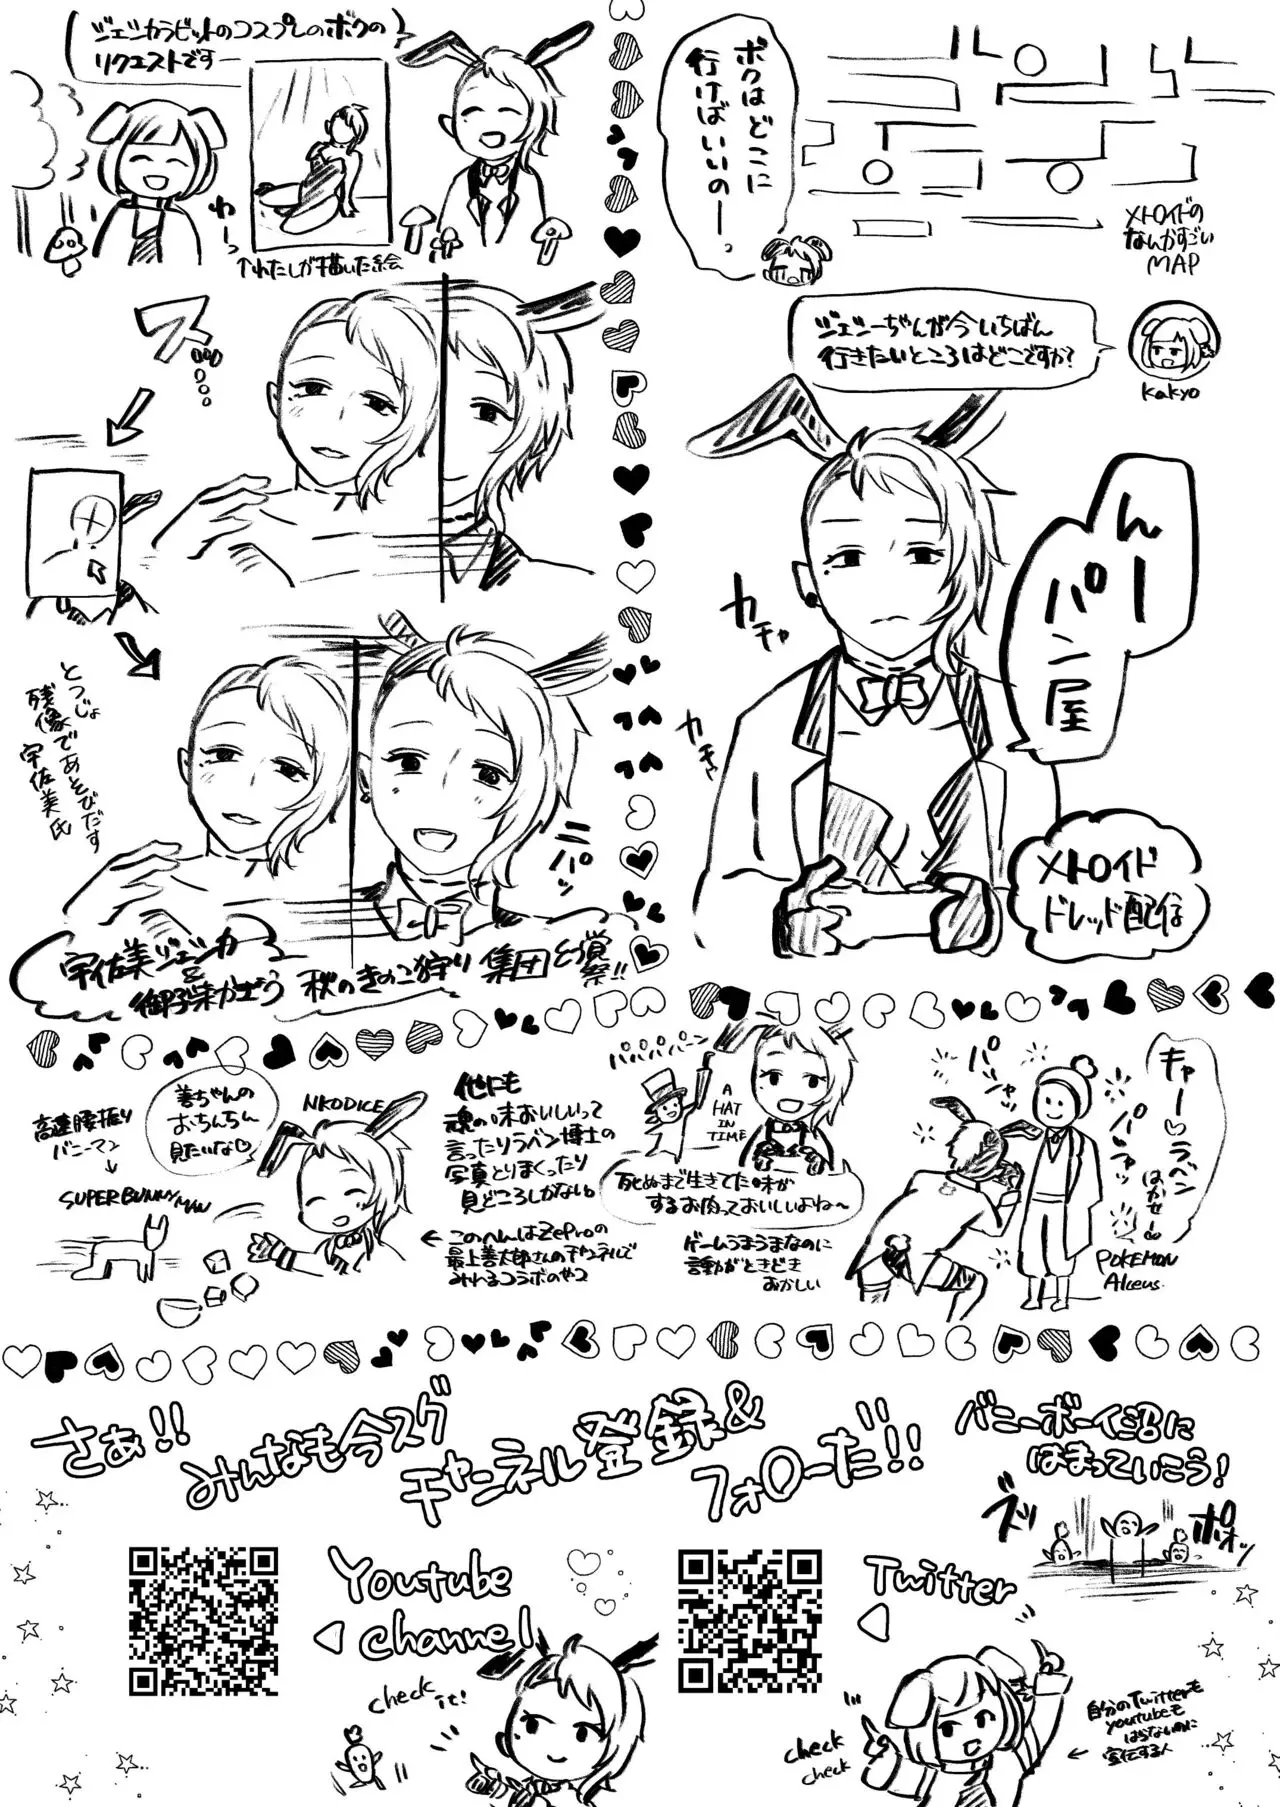 ジェシカラビットのコスプレのボクの
リクエストですー
わーっ
↑わたしが描いた絵
ス…
とつじょ
残像であそびだす
宇佐美氏
ニパッ
宇佐美ジェシカ
&
秋のきのこ狩り集団幻覚祭!!
ボクはどこに
行けばいいのーっ
メトロイドの
なんかすごい
MAP
ジェシーちゃんが今いちばん
行きたいところはどこですか?
kakyo
んー
パン屋
カチャ
カチャ
メトロイド
ドレッド配信
高速腰振り
バニーマン
↓
SUPER BUNNY MAN
善ちゃんの
おちんちん
見たいな♡
NKODICE
他にも
魂の味おいしいって
言ったりラベン博士の
写真とりまくったり
見どころしかない。
←このへんはZeProの
最上善太郎さんのチャンネルで
みれるコラボのやつ
パパパパーン
A
HAT
IN
TIME
死ぬまで生きてた味が
するお肉っておいしいよね〜
ゲームうまうまなのに
言動がときどき
おかしい
パシャッ
パシャッ
キャー♡ラベン
はかせー
POKEMON
Alceus.
さぁ!!
みんなも今スグ
チャンネル登録&
フォローだ!!
バニーボーイ沼に
はまっていこう!
ズッ
ポォッ
Youtube
◁ channel
check
it!
Twitter
◁
check
check
自分のTwitterも
youtubeも
はらないのに
← 宣伝する人